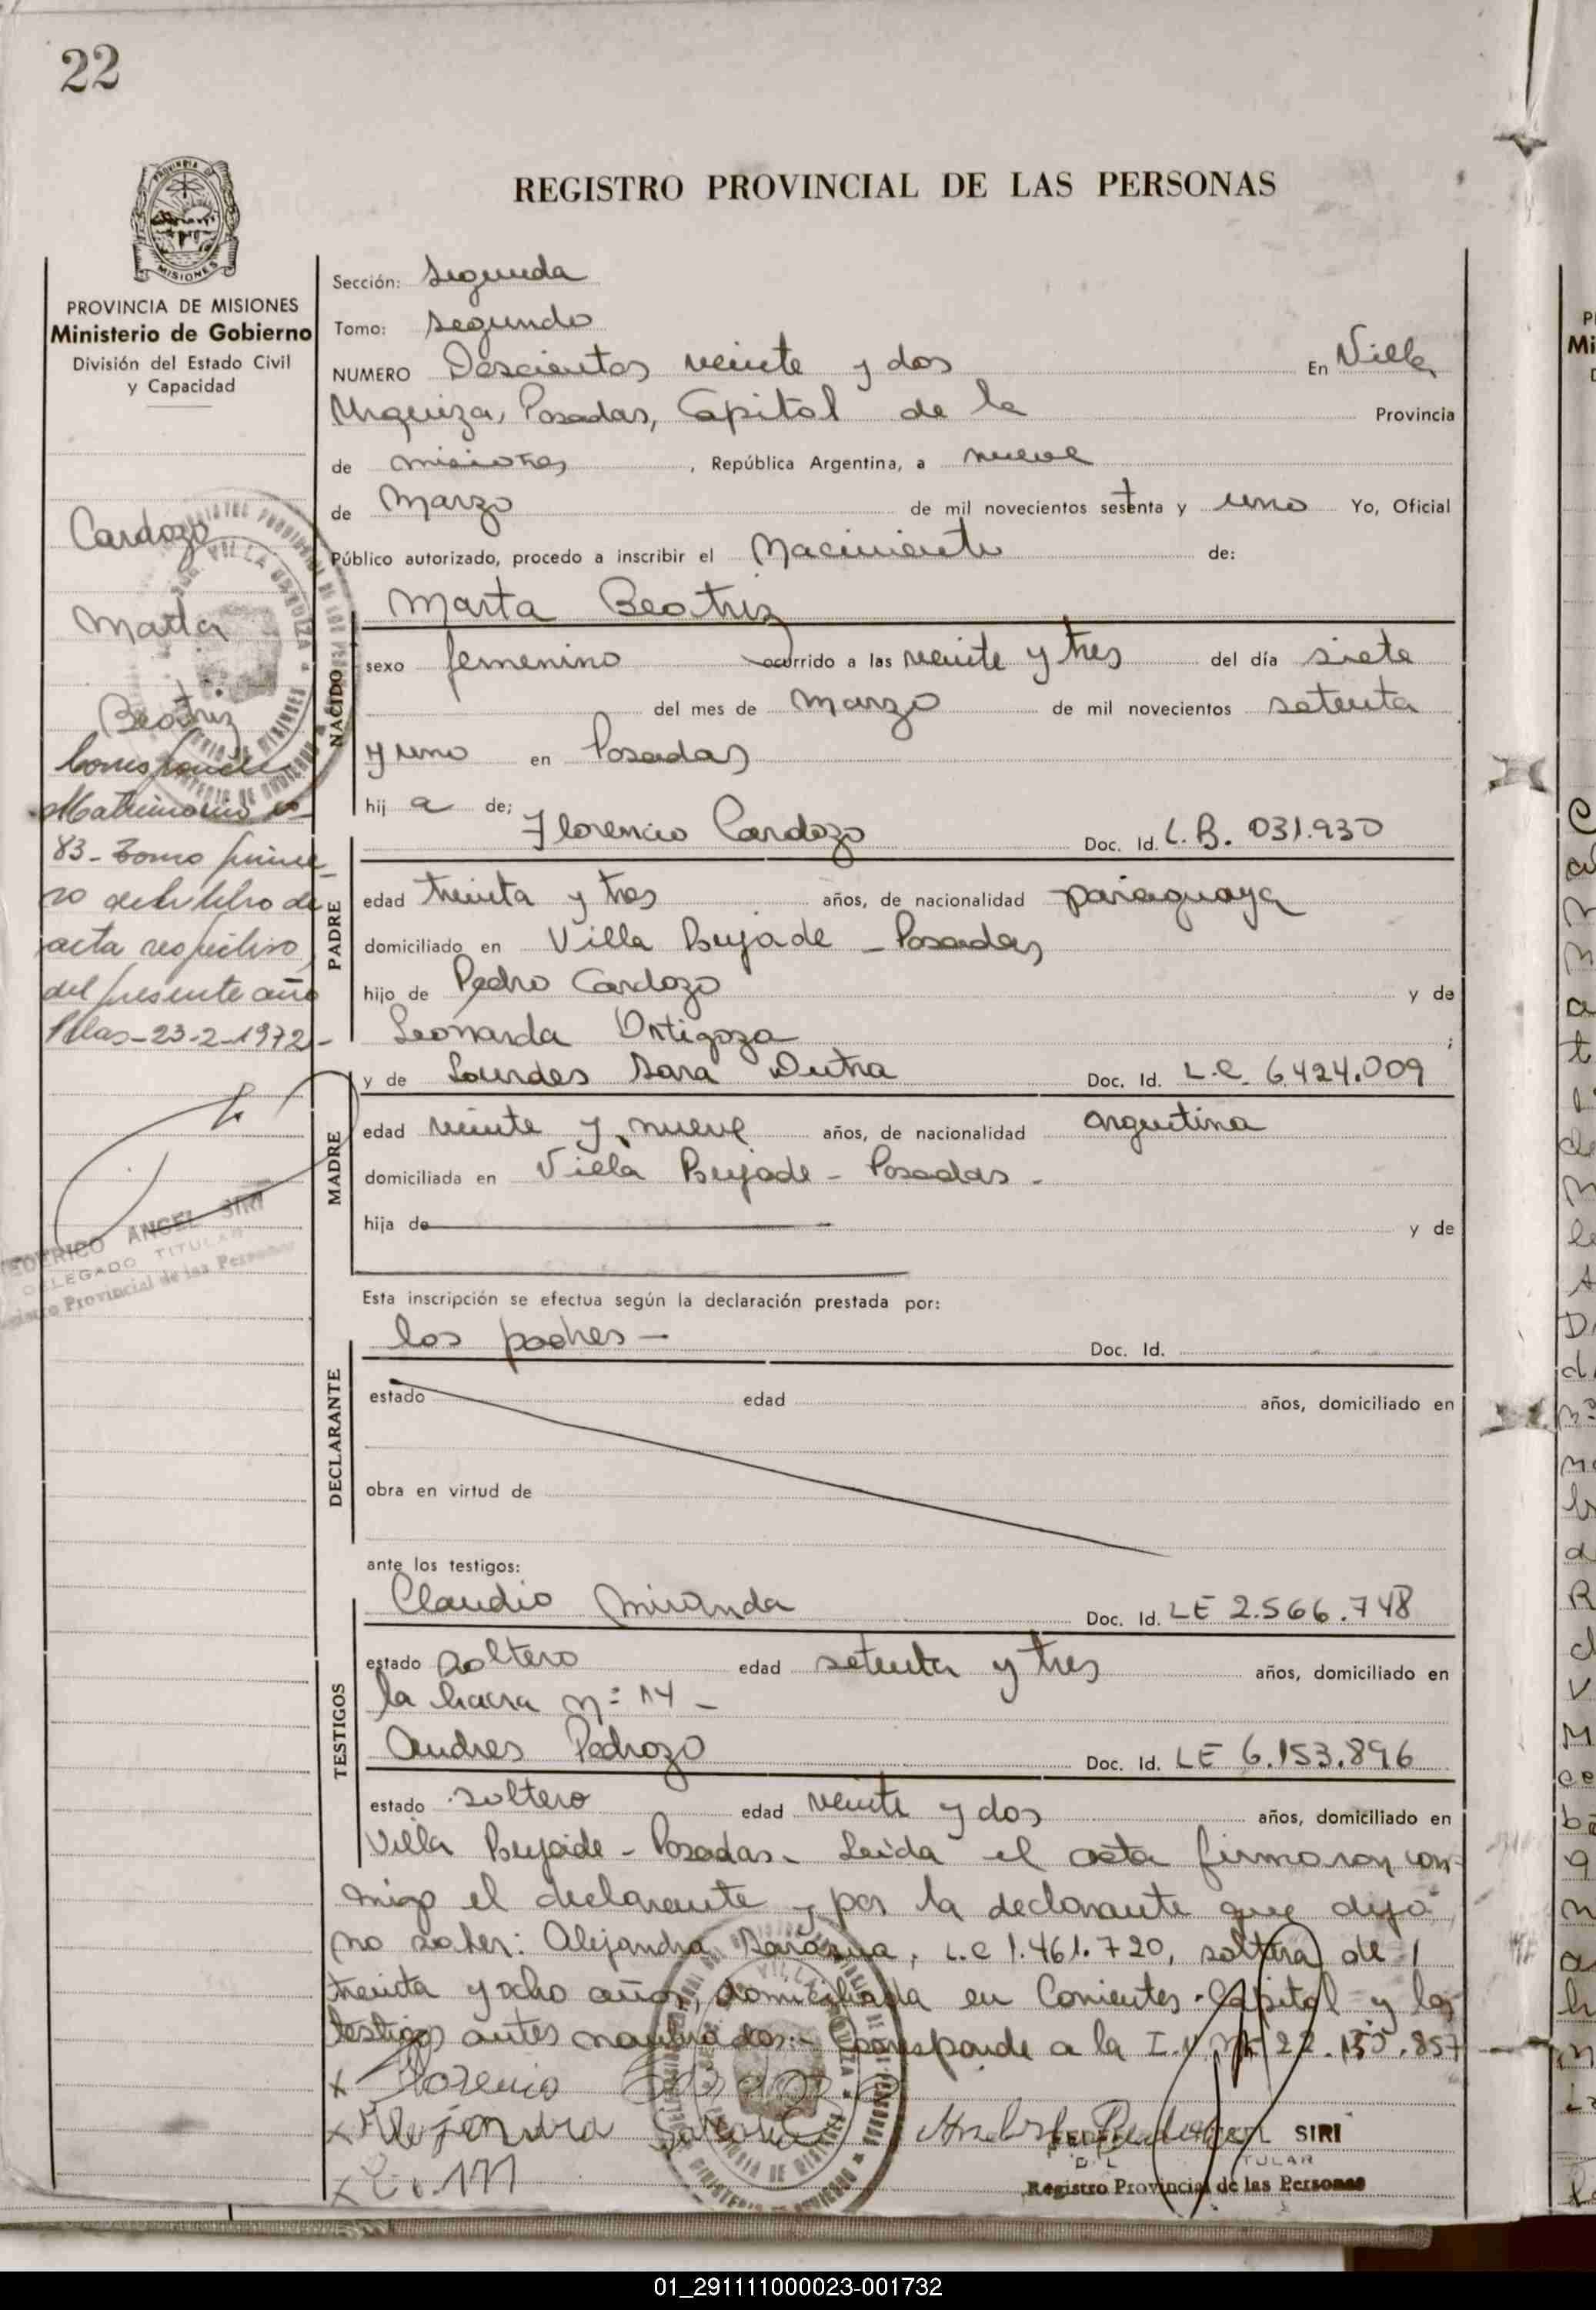 22
REGISTRO PROVINCIAL DE LAS PERSONAS
PROVINCIA DE MISIONES
Ministerio de Gobierno
División del Estado Civil
y Capacidad
Cardozo
Marta
Beatriz
Corresponde
Matrimonio nº
83-Tomo prime
ro del libro de
acta respectivo
del presente año
Pdas-23-2-1972-
ANGEL SIRI
DELEGADO TITULAR
Registro Provincial de las Personas
Sección: Segunda
Tomo: Segundo
NUMERO Doscientos veinte y dos En Villa
Urquiza, Posadas, Capital de la Provincia
de Misiones, República Argentina, a nueve
de Marzo de mil novecientos setenta y uno Yo, Oficial
Público autorizado, procedo a inscribir el Nacimiento de:
Marta Beatriz
NACIDO
sexo femenino ocurrido a las veinte y tres del día siete
del mes de Marzo de mil novecientos setenta
y uno en Posadas
hij a de; Florencio Cardozo Doc. Id. C.B. 031.930
PADRE
edad treinta y tres años, de nacionalidad paraguaya
domiciliado en Villa Bejade - Posadas
hijo de Pedro Cardozo y de
Leonarda Ortigoza ;
y de Lourdes Sara Dutra Doc. Id. L.C. 6.424.009
MADRE
edad veinte y nueve años, de nacionalidad argentina
domiciliada en Villa Bejade - Posadas -
hija de y de
Esta inscripción se efectua según la declaración prestada por:
los padres - Doc. Id.
DECLARANTE
estado edad años, domiciliado en
obra en virtud de
ante los testigos:
Claudio Miranda Doc. Id. LE 2.566.748
TESTIGOS
estado soltero edad setenta y tres años, domiciliado en
la hacra nº 14 -
Andres Pedrozo Doc. Id. LE 6.153.896
estado soltero edad veinte y dos años, domiciliado en
Villa Bejade - Posadas. Leida el acta firmaron con-
migo el declarante y por la declarante que dijo
no saber: Alejandra, L.C 1.461.720, soltera, de
treinta y ocho años, domiciliada en Corrientes-Capital y los
testigos antes nombrados:- Corresponde a la I.
x Florencio Cardozo
x Alejandra
SIRI
TULAR
Registro Provincial de las Personas
01_291111000023-001732